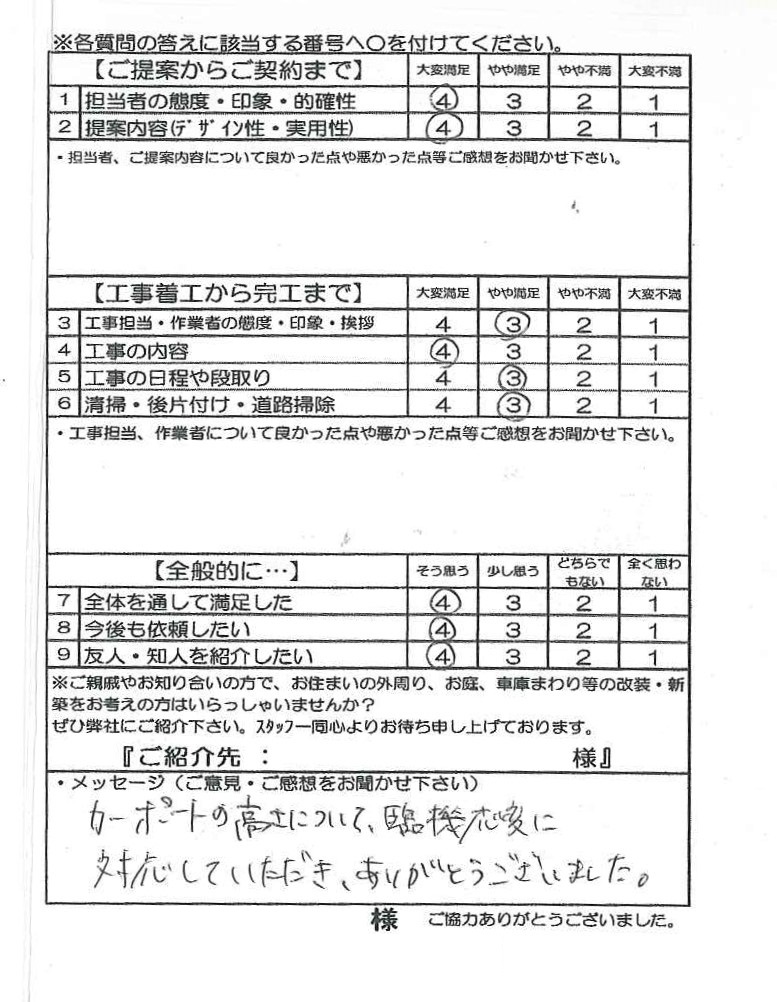 ※各質問の答えに該当する番号へ〇を付けてください。
【ご提案からご契約まで】 大変満足 やや満足 やや不満 大変不満
1 担当者の態度・印象・的確性 4 3 2 1
2 提案内容(ﾃﾞｻﾞｲﾝ性・実用性) 4 3 2 1
・担当者、ご提案内容について良かった点や悪かった点等ご感想をお聞かせ下さい。
【工事着工から完工まで】 大変満足 やや満足 やや不満 大変不満
3 工事担当・作業者の態度・印象・挨拶 4 3 2 1
4 工事の内容 4 3 2 1
5 工事の日程や段取り 4 3 2 1
6 清掃・後片付け・道路掃除 4 3 2 1
・工事担当、作業者について良かった点や悪かった点等ご感想をお聞かせ下さい。
【全般的に…】 そう思う 少し思う どちらでもない 全く思わない
7 全体を通して満足した 4 3 2 1
8 今後も依頼したい 4 3 2 1
9 友人・知人を紹介したい 4 3 2 1
※ご親戚やお知り合いの方で、お住まいの外周り、お庭、車庫まわり等の改装・新
築をお考えの方はいらっしゃいませんか？
ぜひ弊社にご紹介下さい。ｽﾀｯﾌ一同心よりお待ち申し上げております。
『ご紹介先： 様』
・メッセージ（ご意見・ご感想をお聞かせ下さい）
カーポートの高さについて、臨機応変に
対応していただき、ありがとうございました。
様 ご協力ありがとうございました。